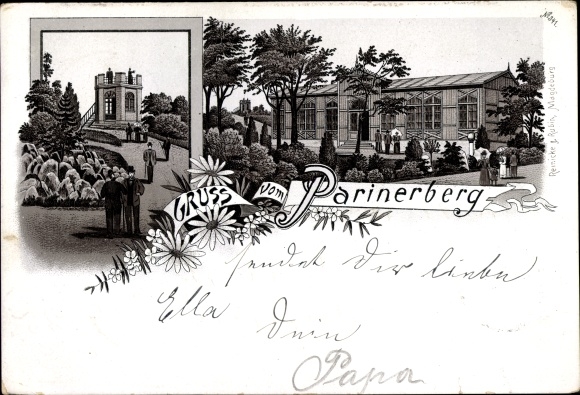 GRUSS vom Parinerberg
Reinicke & Rubin, Magdeburg
sendet Dir liebe
Ella Dein
Papa